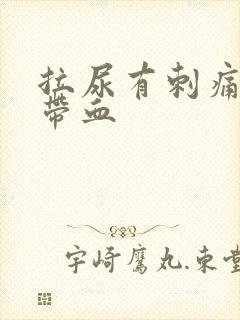 拉尿有刺痛
带血
宇崎鹰丸.东堂